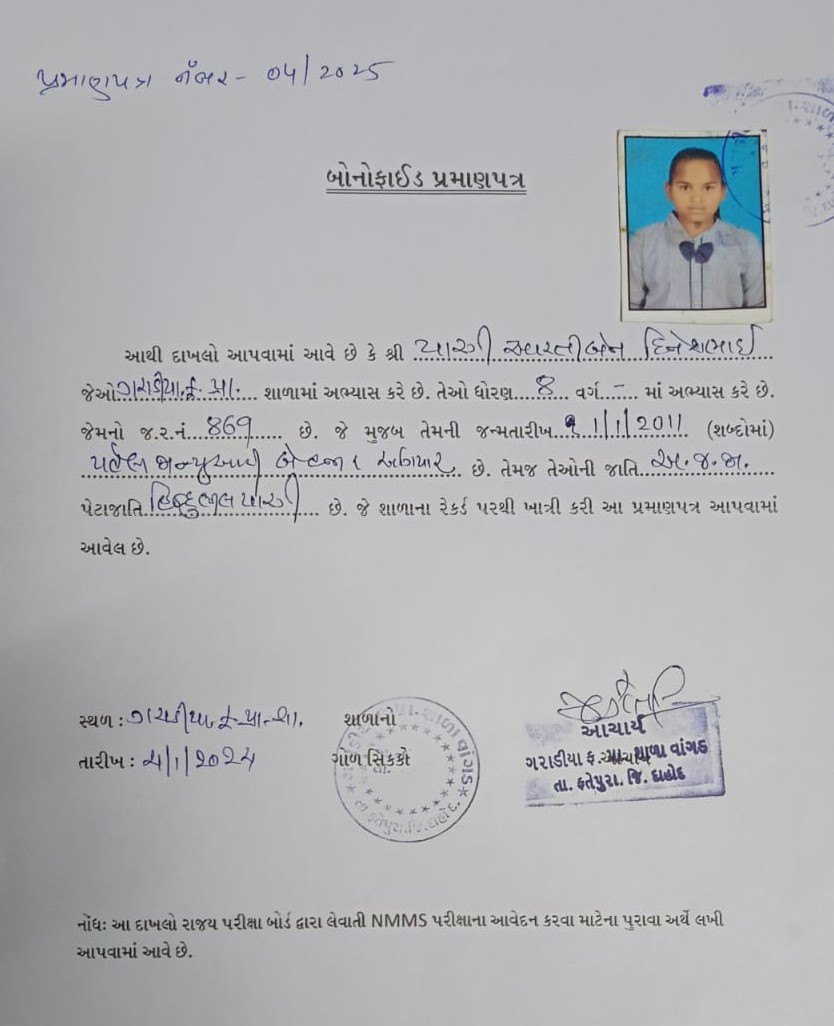 પ્રમાણપત્ર નંબર - 04/2025
બોનોફાઈડ પ્રમાણપત્ર
આથી દાખલો આપવામાં આવે છે કે શ્રી પારગી આરતીબેન દિનેશભાઈ
જેઓ ગરાડીયા. ફ. પ્રા. શાળામાં અભ્યાસ કરે છે. તેઓ ધોરણ 8 વર્ગ - માં અભ્યાસ કરે છે.
જેમનો જ.ર.નં. 869 છે. જે મુજબ તેમની જન્મતારીખ 1/1/2011 (શબ્દોમાં)
પહેલી જાન્યુઆરી બે હજાર અગિયાર છે. તેમજ તેઓની જાતિ અ.જ.જા.
પેટાજાતિ પારગી છે. જે શાળાના રેકર્ડ પરથી ખાત્રી કરી આ પ્રમાણપત્ર આપવામાં
આવેલ છે.
સ્થળ : ગરાડીયા. ફ. પ્રા. શા. શાળાનો
તારીખ : ગોળ સિક્કો
આચાર્ય
ગરાડીયા ફ. શાળા વાંગડ
તા. ફતેપુરા. જિ. દાહોદ
નોંધઃ આ દાખલો રાજય પરીક્ષા બોર્ડ દ્વારા લેવાતી NMMS પરીક્ષાના આવેદન કરવા માટેના પુરાવા અર્થે લખી
આપવામાં આવે છે.